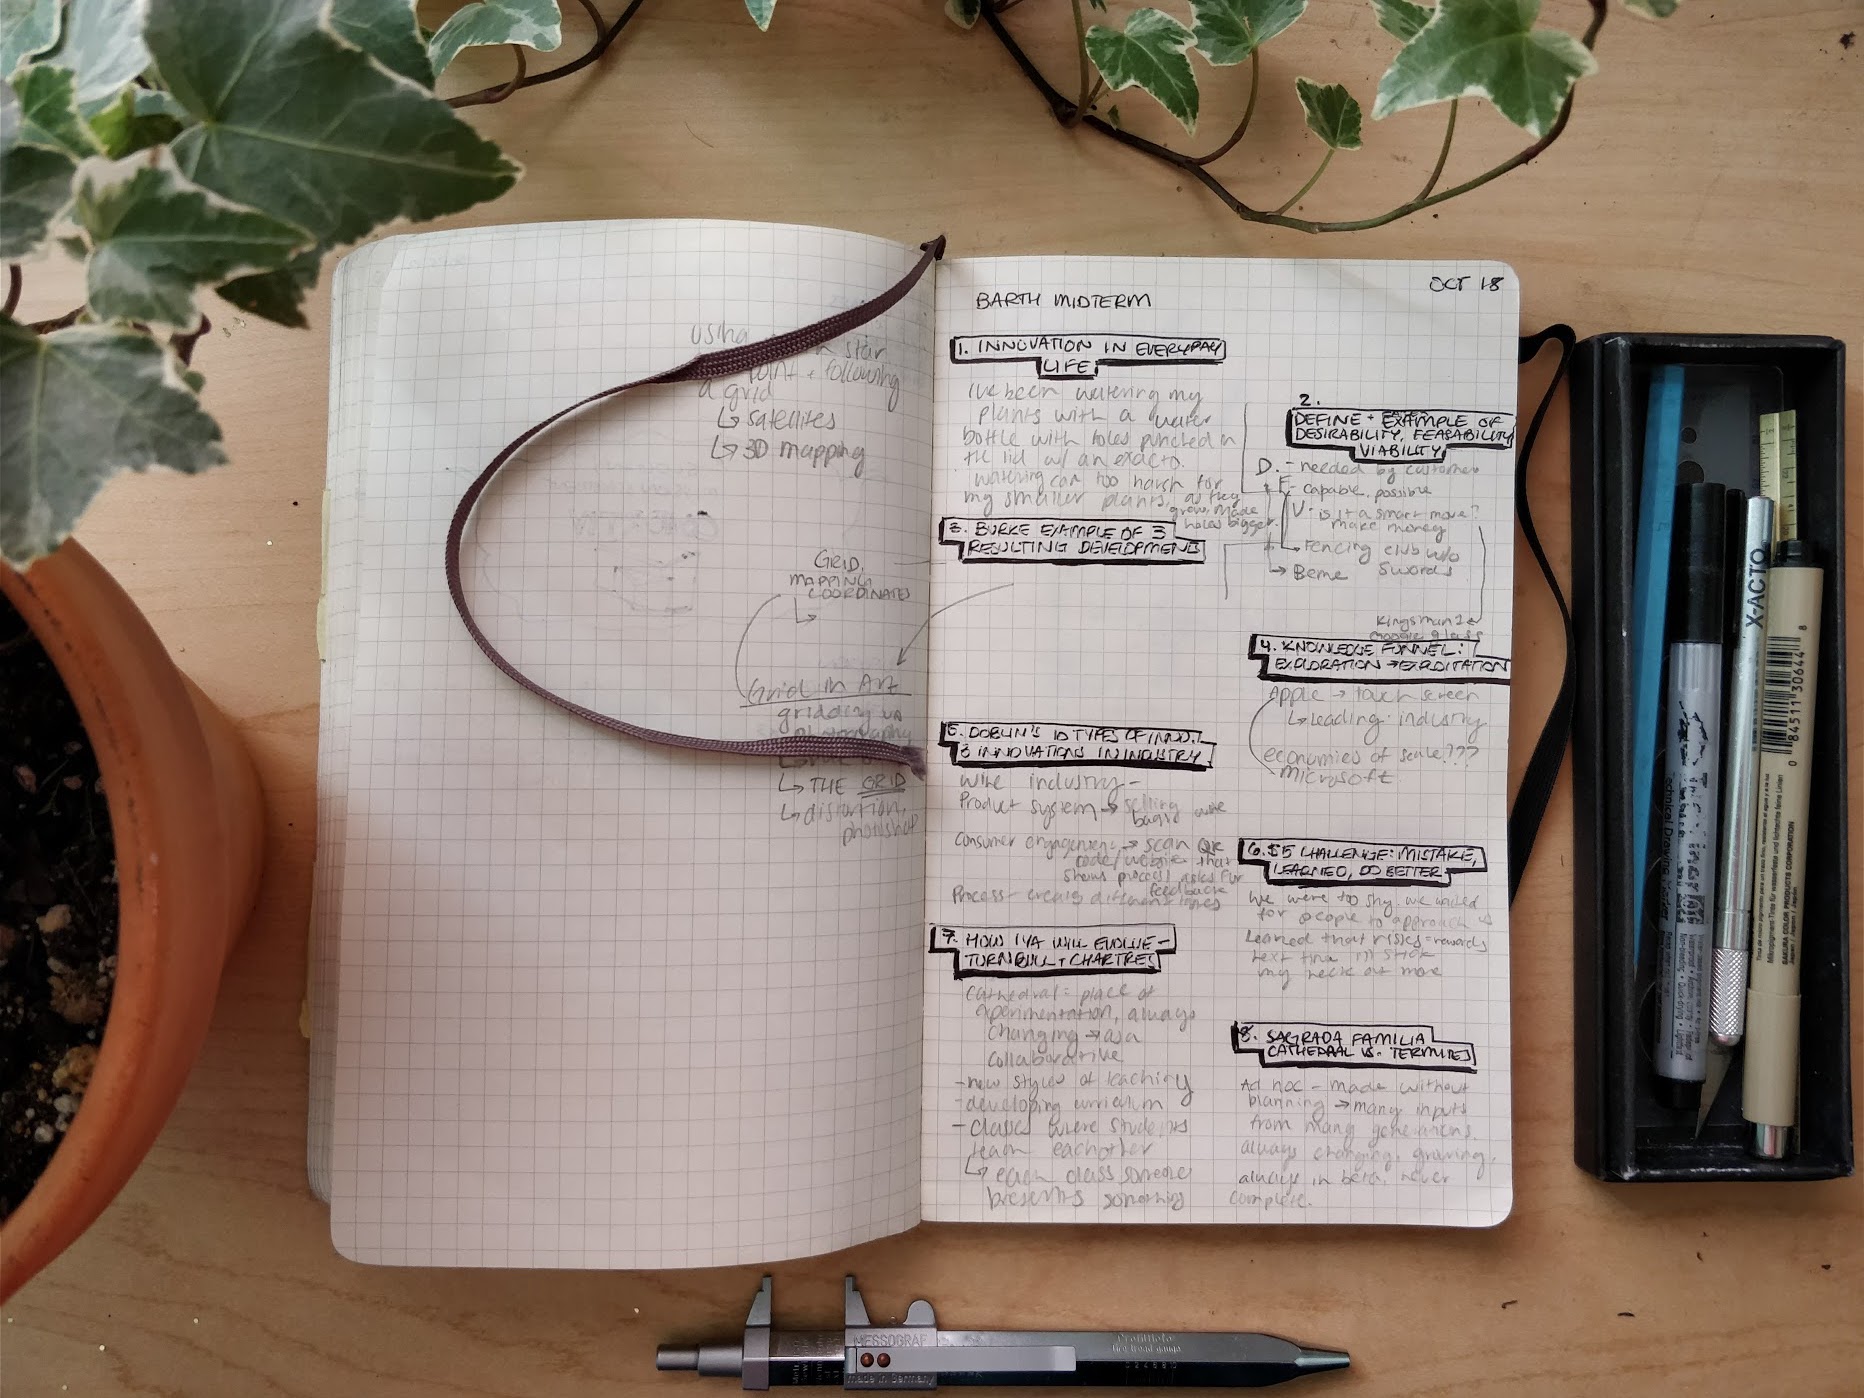 a grid
↳ satellites
↳ 3D mapping
GRID,
MAPPING,
COORDINATES
Grid in Art
gridding
↳ THE GRID
↳ distortion,
photoshop
OCT 18
BARTH MIDTERM
1. INNOVATION IN EVERYDAY
LIFE
I've been watering my
plants with a water
bottle with holes punched in
the lid w/ an exacto.
watering can too harsh for
my smaller plants, as they
grow, made
holes bigger.
2.
DEFINE + EXAMPLE OF
DESIRABILITY, FEASABILITY
VIABILITY
D. - needed by customer
F - capable, possible
V - is it a smart move?
make money
Fencing club w/o
swords
Beme
Kingsman 2
Google glass
3. BURKE EXAMPLE OF 3
RESULTING DEVELOPMENTS
4. KNOWLEDGE FUNNEL:
EXPLORATION → EXPLOITATION
Apple → touch screen
↳ Leading industry
economies of scale???
Microsoft
5. DOBLIN'S 10 TYPES OF INNO.
3 INNOVATIONS IN INDUSTRY
Wire industry -
Product system → selling
basic wire
consumer engagement → scan QR
code/website that
shows process, asks for
feedback
Process - create different
6. $5 CHALLENGE: MISTAKE,
LEARNED, DO BETTER
We were too shy, we waited
for people to approach us
Learned that risks = rewards
next time I'll stick
my neck out more
7. HOW IYA WILL EVOLVE -
TURNBULL + CHARTRES
Cathedral = place of
experimentation, always
changing →
collaborative
- new styles of teaching
- developing curriculum
- classes where students
teach eachother
↳ each class someone
presents something
8. SAGRADA FAMILIA
CATHEDRAL VS. TERMITES
Ad hoc - made without
planning → many inputs
from many generations.
always changing, growing,
always in beta, never
complete.
X-ACTO
Technical Drawing Marker
0 84511 30644 8
SAKURA COLOR PRODUCTS CORPORATION
MESSOGRAF
made in Germany